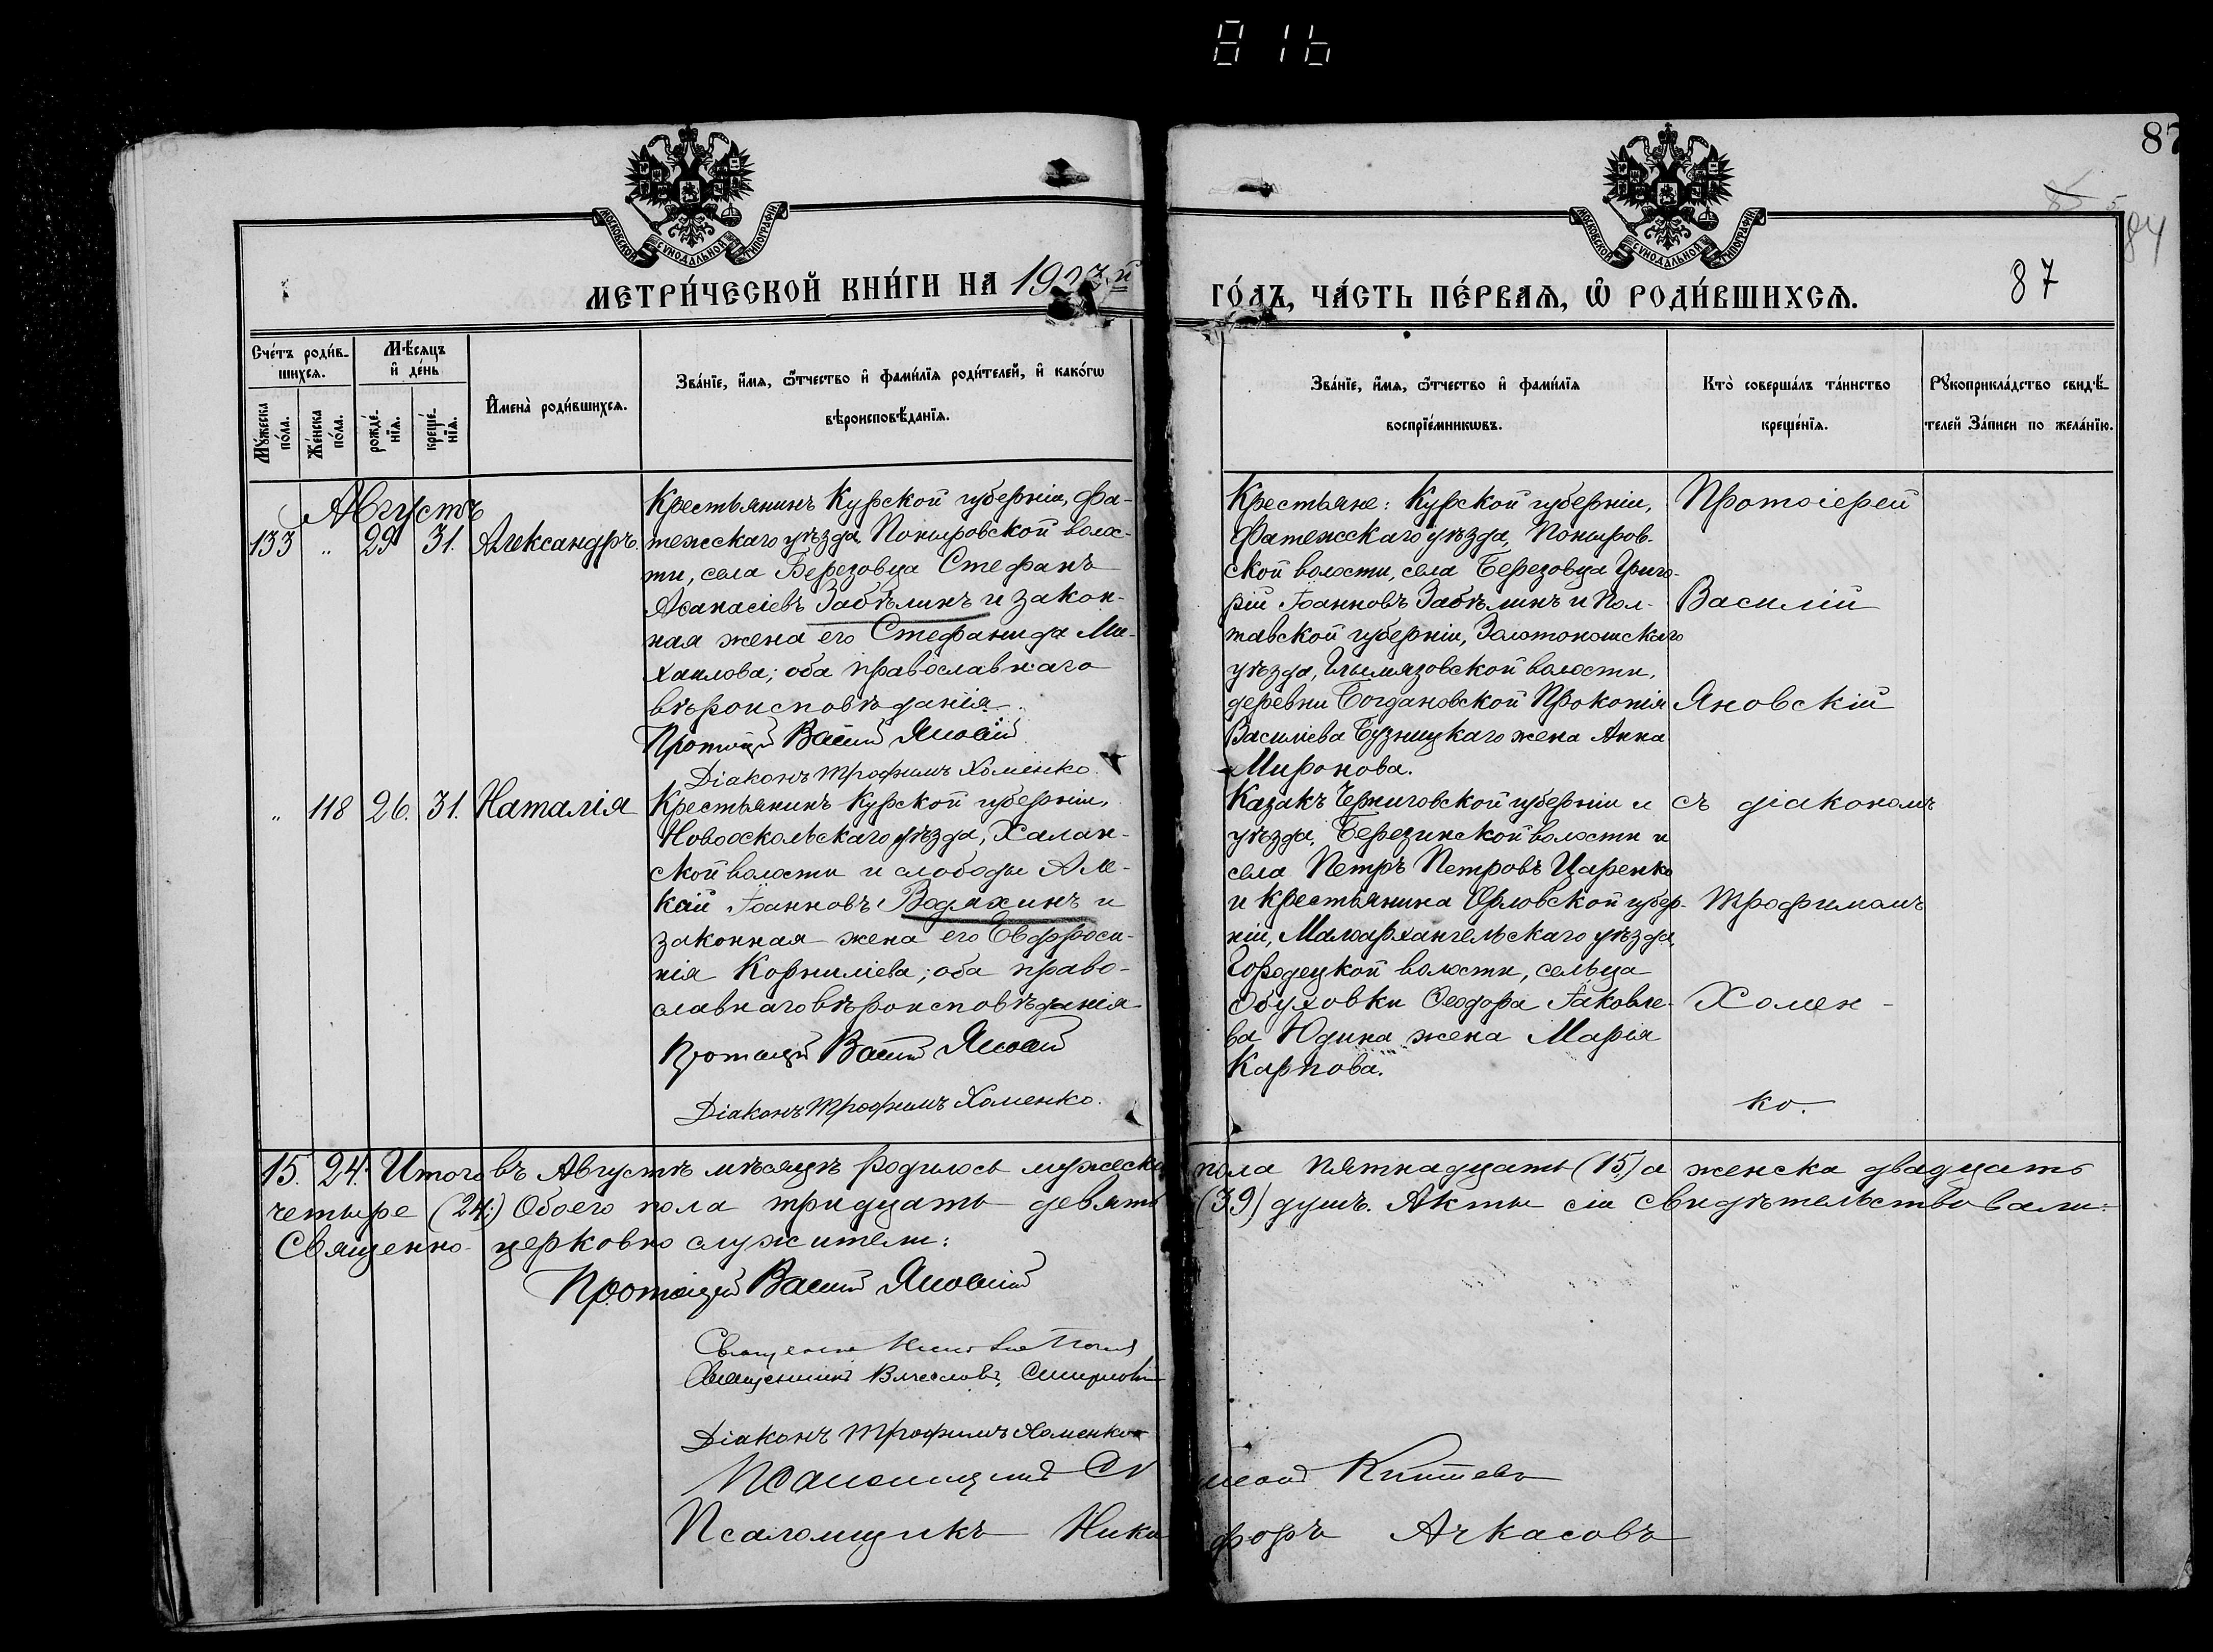 816
87
85
84
87
МОСКОВСКОЙ СѴНОДАЛЬНОЙ ТИПОГРАФІИ
МОСКОВСКОЙ СѴНОДАЛЬНОЙ ТИПОГРАФІИ
МЕТРИ́ЧЕСКОЙ КНИ́ГИ НА
ГО́ДЪ, ЧА́СТЬ ПЕ́РВАѦ, Ѡ҆ РОДИ́ВШИХСѦ.
Сче́тъ роди́в-
шихсѧ.
Мꙋ́жеска
по́ла.
Же́нска
по́ла.
Мѣ́сѧцъ
и҆ де́нь
рожде́-
нїѧ.
креще́-
нїѧ.
И҆мена̀ роди́вшихсѧ.
Зва́нїе, и҆́мѧ, ѻ҆́тчество и҆ фами́лїѧ роди́телей, и҆ како́гѡ
вѣроисповѣ́данїѧ.
Зва́нїе, и҆́мѧ, ѻ҆́тчество и҆ фами́лїѧ
воспрїе́мникѡвъ.
Кто̀ соверша́лъ та́инство
креще́нїѧ.
Рꙋкоприкла́дство свидѣ́-
телей За́писи по жела́нїю.
Августъ
133 " 29 31. Александръ
Крестьянинъ Курской губерніи, Фа-
тежскаго уѣзда, Поныровской волос-
ти, села Березовца Стефанъ
Аѳанасіевъ Забѣлинъ и закон-
ная жена его Стефанида Ми-
хаилова; оба православнаго
вѣроисповѣданія.
Протоіерей Василій Яновскій
Діаконъ Трофимъ Хоменко.
Крестьяне: Курской губерніи,
Фатежскаго уѣзда, Поныров-
ской волости, села Березовца Григо-
рій Іоанновъ Забѣлинъ и Пол-
тавской губерніи, Золотоношскаго
уѣзда, Гельмязовской волости,
деревни Богдановской Прокопія
Василіева Бузницкаго жена Анна
Миронова.
Протоіерей
Василій
Яновскій
" 118 26. 31. Наталія
Крестьянинъ Курской губерніи,
Новооскольскаго уѣзда, Халан-
ской волости и слободы Але-
ксій Іоанновъ Водяхинъ и
законная жена его Евфроси-
нія Корниліева; оба право-
славнаго вѣроисповѣданія
Протоіерей Василій Яновскій
Діаконъ Трофимъ Хоменко.
Казакъ Черниговской губерніи и
уѣзда, Березинской волости и
села Петръ Петровъ Царенко
и крестьянина Орловской губер-
ніи, Малоархангельскаго уѣзда,
Городецкой волости, сельца
Обуховки Ѳеодора Іаковле-
ва Юдина жена Марія
Карпова.
съ діакономъ
Трофимомъ
Хомен-
ко.
15. 24. Итого въ Августѣ мѣсяцѣ родилось мужеска пола пятнадцать (15) а женска двадцать
четыре (24;) Обоего пола тридцать девять (39) душъ. Акты сіи свидѣтельствовали:
Священно-церковно служители:
Протоіерей Василій Яновскій
Священникъ
Священникъ Вячеславъ
Діаконъ Трофимъ Хоменко
Псаломщикъ
Псаломщикъ Никифоръ Ачкасовъ